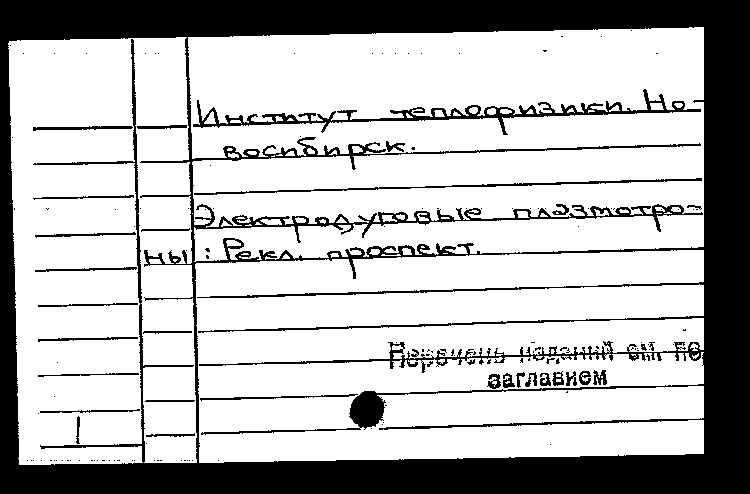 Институт теплофизики. Но-
восибирск.
Электродуговые плазмотро-
ны : Рекл. проспект.
Перечень изданий см. под
заглавием